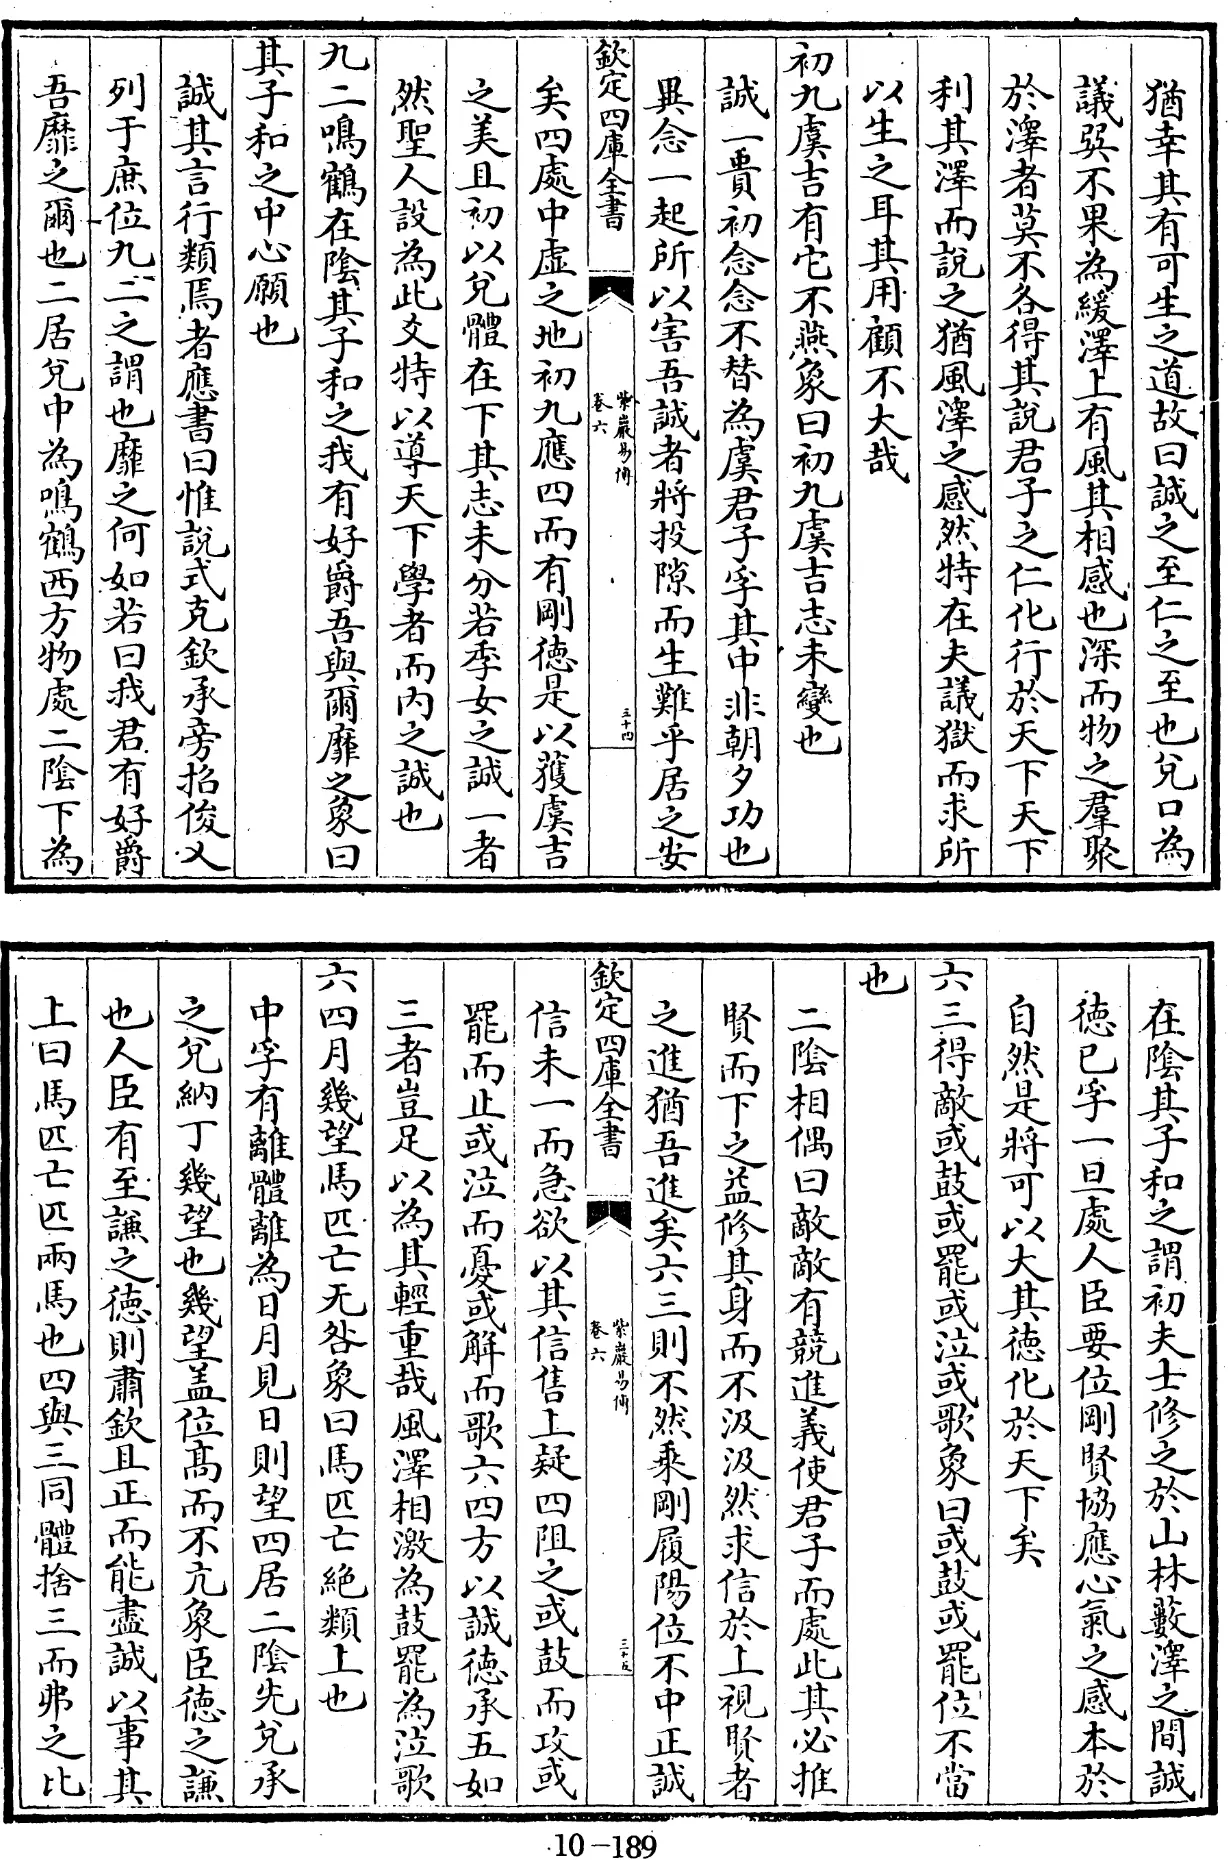 猶幸其有可生之道故曰誠之至仁之至也兌口為
議巽不果為緩澤上有風其相感也深而物之羣聚
於澤者莫不各得其說君子之仁化行於天下天下
利其澤而說之猶風澤之感然特在夫議獄而求所
以生之耳其用顧不大哉
初九虞吉有它不燕象曰初九虞吉志未變也
誠一貴初念念不替為虞君子孚其中非朝夕功也
異念一起所以害吾誠者將投隙而生難乎居之安
欽定四庫全書
紫巖易傳
卷六
三十四
矣四處中虛之地初九應四而有剛德是以獲虞吉
之美且初以兌體在下其志未分若季女之誠一者
然聖人設為此爻特以導天下學者而內之誠也
九二鳴鶴在陰其子和之我有好爵吾與爾靡之象曰
其子和之中心願也
誠其言行類焉者應書曰惟說式克欽承旁招俊乂
列于庶位九二之謂也靡之何如若曰我君有好爵
吾靡之爾也二居兌中為鳴鶴西方物處二陰下為
在陰其子和之謂初夫士修之於山林藪澤之間誠
德已孚一旦處人臣要位剛賢協應心氣之感本於
自然是將可以大其德化於天下矣
六三得敵或鼓或罷或泣或歌象曰或鼓或罷位不當
也
二陰相偶曰敵敵有競進義使君子而處此其必推
賢而下之益修其身而不汲汲然求信於上視賢者
之進猶吾進矣六三則不然乘剛履陽位不中正誠
欽定四庫全書
紫巖易傳
卷六
三十五
信未一而急欲以其信售上疑四阻之或鼓而攻或
罷而止或泣而憂或解而歌六四方以誠德承五如
三者豈足以為其輕重哉風澤相激為鼓罷為泣歌
六四月幾望馬匹亡无咎象曰馬匹亡絕類上也
中孚有離體離為日月見日則望四居二陰先兌承
之兌納丁幾望也幾望蓋位高而不亢象臣德之謙
也人臣有至謙之德則肅欽且正而能盡誠以事其
上曰馬匹亡匹兩馬也四與三同體捨三而弗之比
10-189